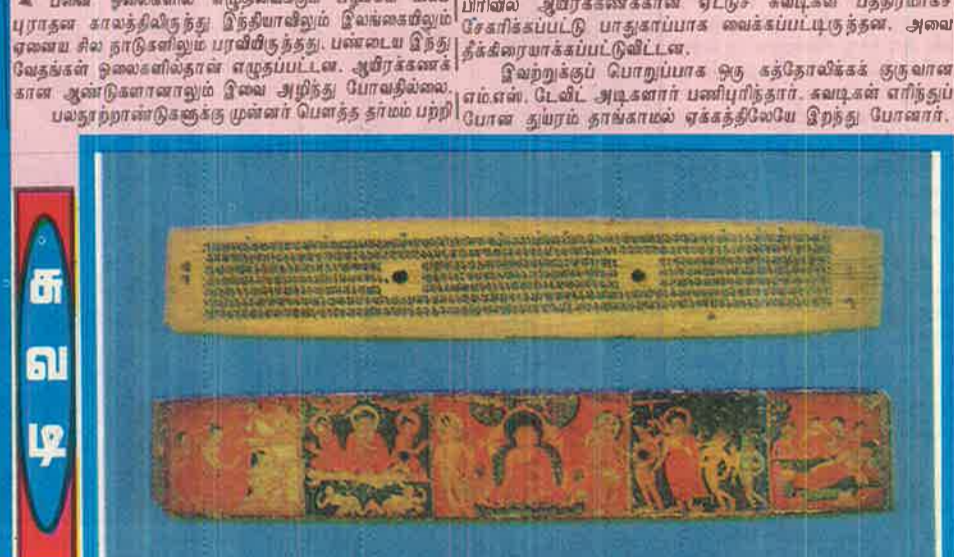 பனை ஓலைகளில் எழுதிவைக்கும்
புராதன காலத்திலிருந்து இந்தியாவிலும் இலங்கையிலும்
ஏனைய சில நாடுகளிலும் பரவியிருத்தது. பண்டைய இந்து
வேதங்கள் ஓலைகளில்தான் எழுதப்பட்டன. ஆயிரக்கணக்
கான ஆண்டுகளானாலும் இவை அழிந்து போவதில்லை.
பலநூற்றாண்டுகளுக்கு முன்னர் பௌத்த தர்மம் பற்றி
பிரிவில் ஆயிரக்கணக்கான ஏட்டுச் சுவடிகள் பத்திரமாகச்
சேகரிக்கப்பட்டு பாதுகாப்பாக வைக்கப்பட்டிருந்தன. அவை
தீக்கிரையாக்கப்பட்டுவிட்டன.
இவற்றுக்குப் பொறுப்பாக ஒரு கத்தோலிக்கக் குருவான
எம்.எஸ். டேவிட் அடிகளார் பணிபுரிந்தார். சுவடிகள் எரிந்துப்
போன துயரம் தாங்காமல் ஏக்கத்திலேயே இறந்து போனார்.
சு
வ
டி